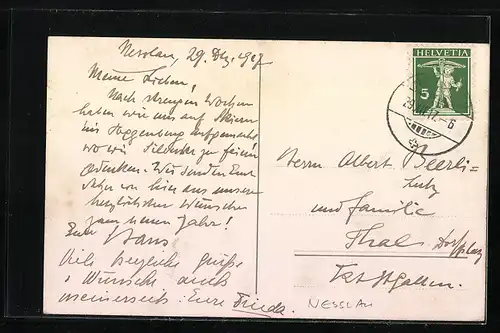 Nesslau, 29. Dez. 1917
Meine Lieben!
Nach strengen Wochen
haben wir uns auf Skiern
ins Toggenburg aufgemacht
wo wir Silvester zu feiern
gedenken. Wir senden Euch
von hier aus unsere
herzlichsten Wünsche
zum neuen Jahr!
Euer Hans
Viele herzliche Grüsse
u Wünsche auch
meinerseits: Eure Frieda.
HELVETIA
5
29.XII.17.-6
Herrn Albert Beerli-
Lutz
und Familie
Thal Dorfplatz
Kt. St. Gallen.
NESSLAU